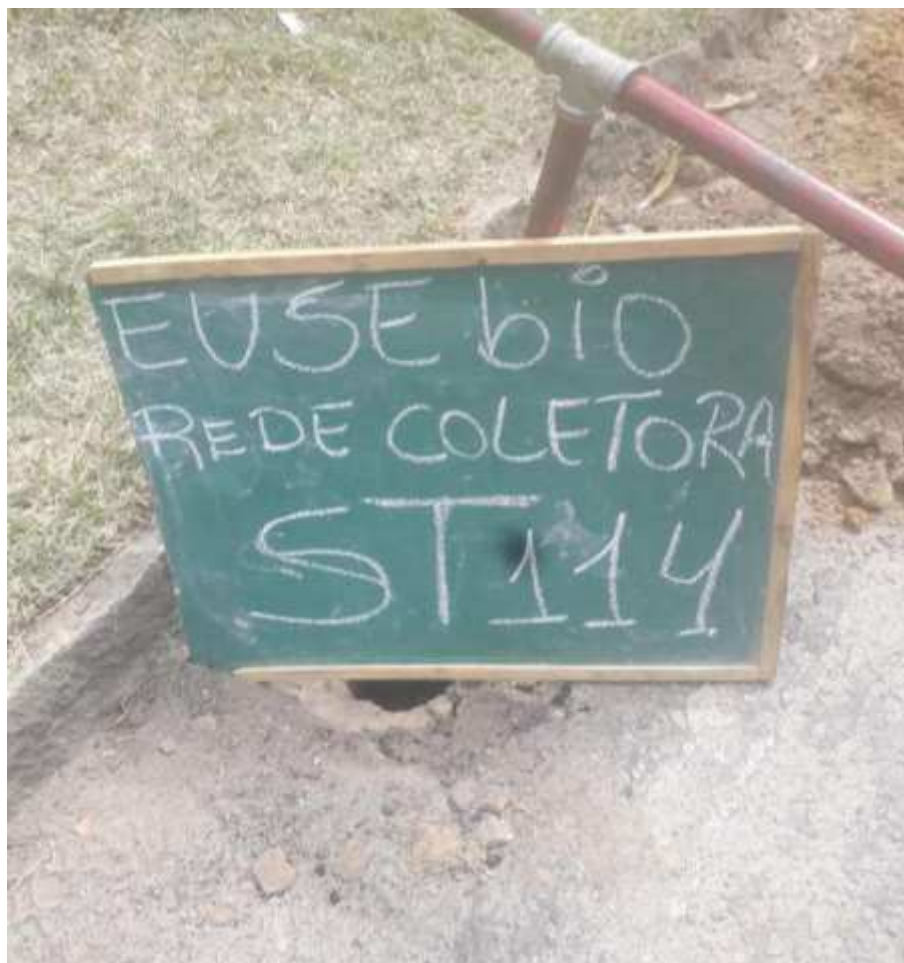 EUSEbiO
REDE COLETORA
ST114